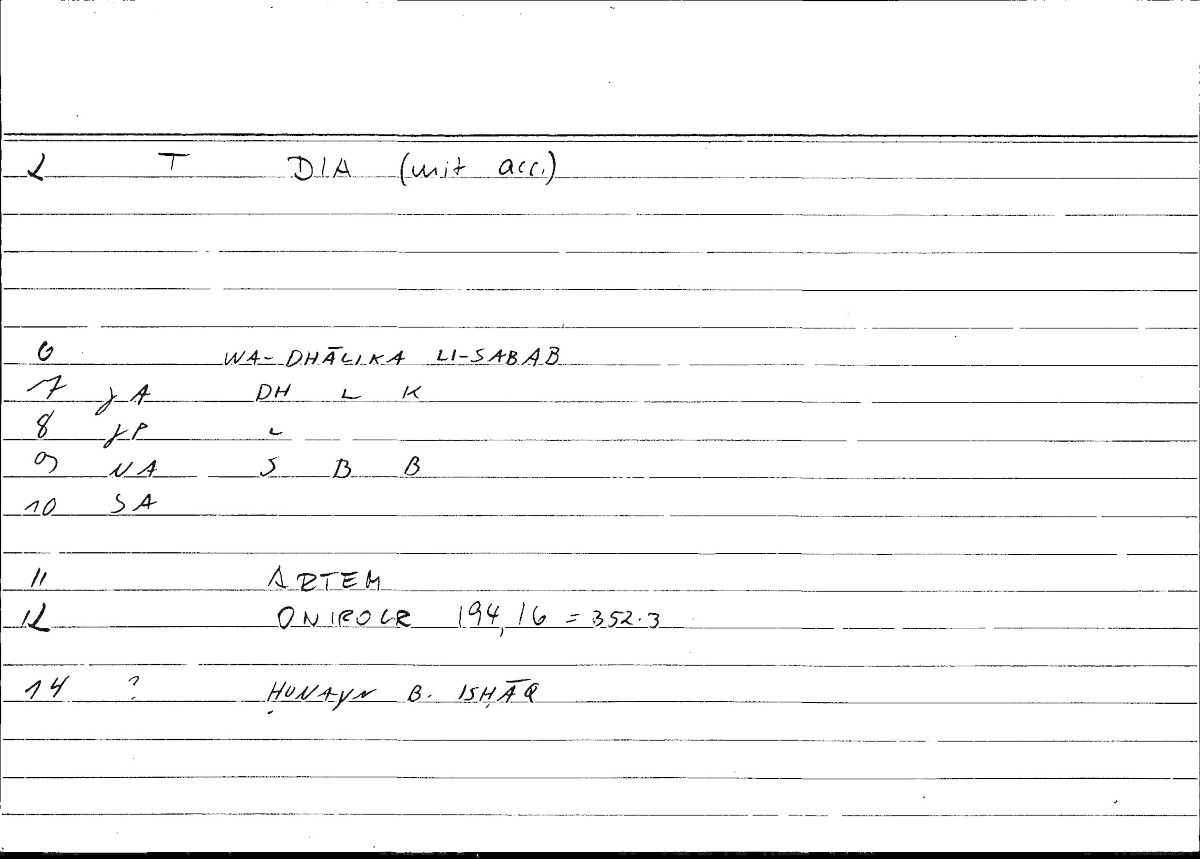 2 T DIA (mit acc.)
6 WA-DHĀLIKA LI-SABAB
7 JA DH L K
8 JP L
9 NA S B B
10 SA
11 ARTEM
12 ONIROCR 194,16 = 352.3
14 ? ḤUNAYN B. ISḤĀQ